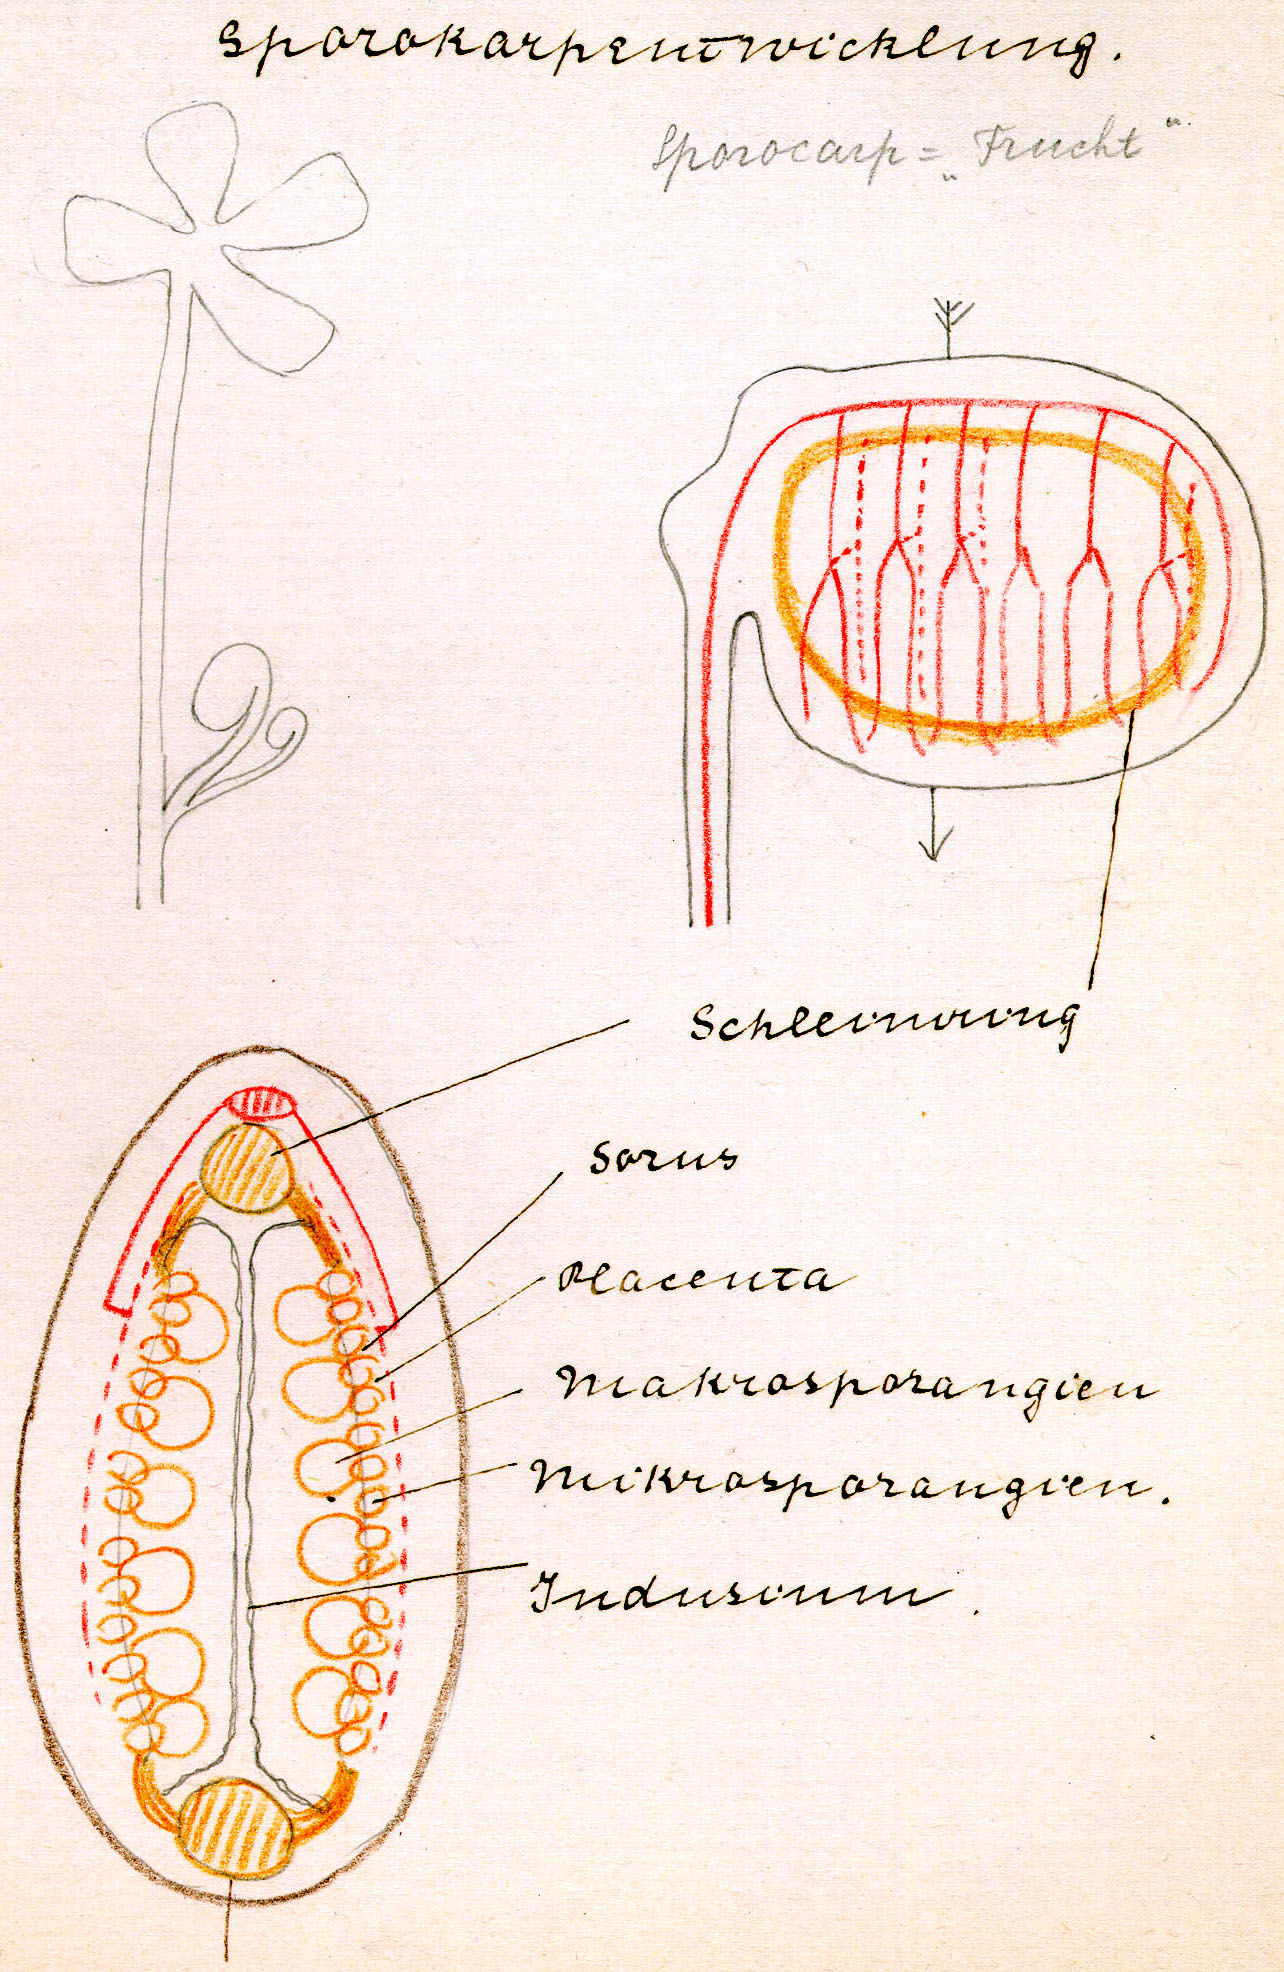 Sporokarpentwicklung.
Sporocarp = „Frucht“
Schleimring
Sorus
Placenta
Makrosporangien
Mikrosporangien.
Indusium.